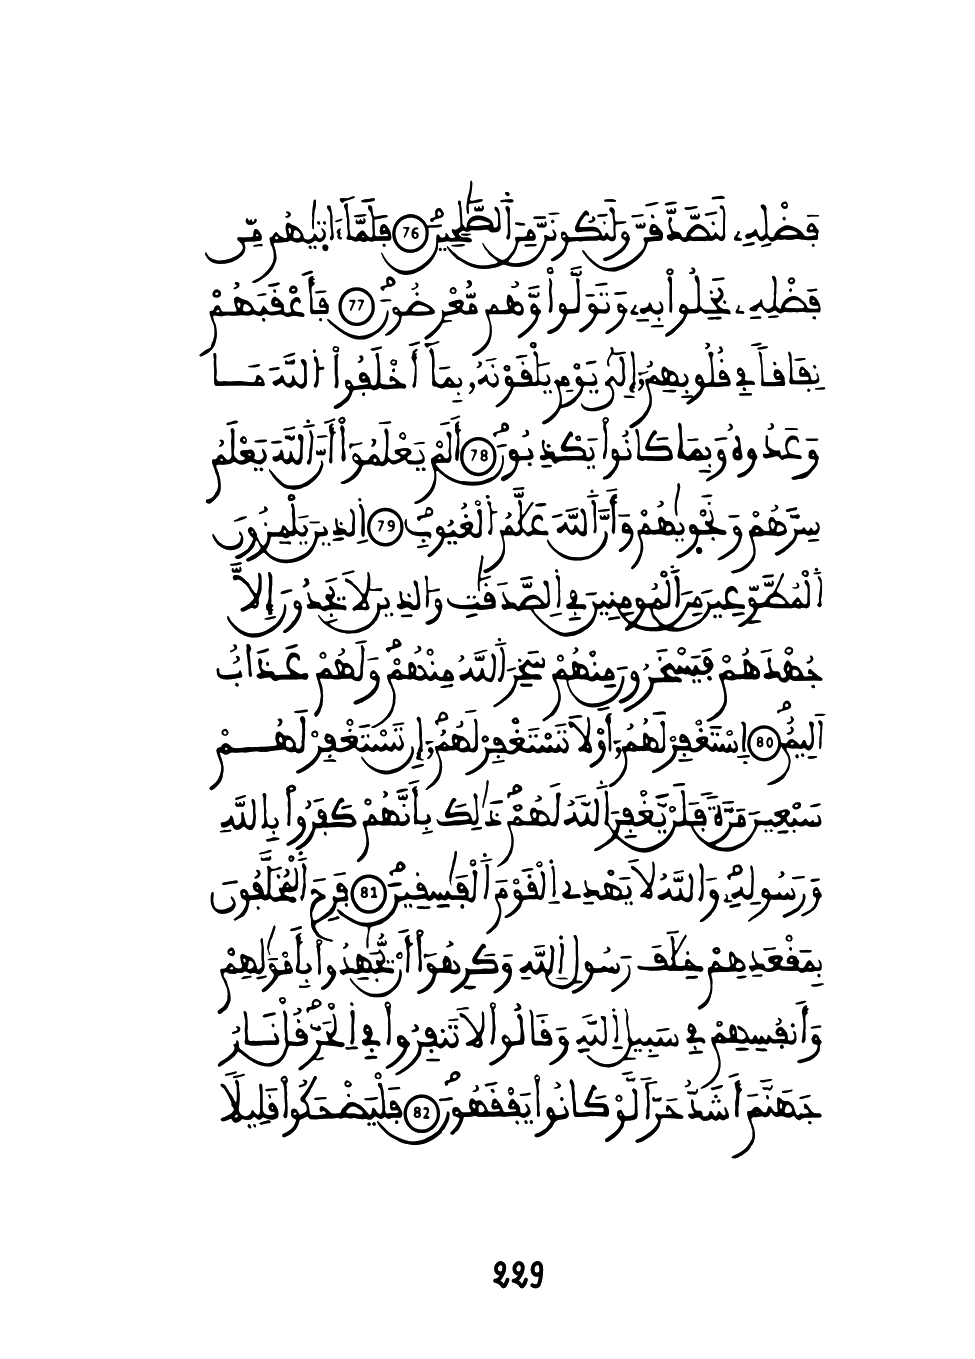 فَضْلِهِۦ لَنَصَّدَّقَنَّ وَلَنَكُونَنَّ مِنَ اَ۬لصَّٰلِحِينَۖ 76 فَلَمَّآ ءَات۪يٰهُم مِّن
فَضْلِهِۦ بَخِلُواْ بِهِۦ وَتَوَلَّواْ وَّهُم مُّعْرِضُونَۖ 77 فَأَعْقَبَهُمْ
نِفَاقاٗ فِے قُلُوبِهِمُۥٓ إِلَىٰ يَوْمِ يَلْقَوْنَهُۥ بِمَآ أَخْلَفُواْ اُ۬للَّهَ مَا
وَعَدُوهُ وَبِمَا كَانُواْ يَكْذِبُونَۖ 78 أَلَمْ يَعْلَمُوٓاْ أَنَّ اَ۬للَّهَ يَعْلَمُ
سِرَّهُمْ وَنَجْو۪يٰهُمْ وَأَنَّ اَ۬للَّهَ عَلَّٰمُ اُ۬لْغُيُوبِۖ 79 اِ۬لذِينَ يَلْمِزُونَ
اَ۬لْمُطَّوِّعِينَ مِنَ اَ۬لْمُومِنِينَ فِے اِ۬لصَّدَقَٰتِ وَالذِينَ لَا يَجِدُونَ إِلَّا
جُهْدَهُمْ فَيَسْخَرُونَ مِنْهُمْ سَخِرَ اَ۬للَّهُ مِنْهُمْۖ وَلَهُمْ عَذَابٌ
اَلِيمٌۖ 80 اِ۪سْتَغْفِرْ لَهُمُۥٓ أَوْ لَا تَسْتَغْفِرْ لَهُمُۥٓۖ إِن تَسْتَغْفِرْ لَهُمْ
سَبْعِينَ مَرَّةٗ فَلَنْ يَّغْفِرَ اَ۬للَّهُ لَهُمْۖ ذَٰلِكَ بِأَنَّهُمْ كَفَرُواْ بِاللَّهِ
وَرَسُولِهِۦۖ وَاللَّهُ لَا يَهْدِے اِ۬لْقَوْمَ اَ۬لْفَٰسِقِينَۖ 81 فَرِحَ اَ۬لْمُخَلَّفُونَ
بِمَقْعَدِهِمْ خِلَٰفَ رَسُولِ اِ۬للَّهِ وَكَرِهُوٓاْ أَنْ يُّجَٰهِدُواْ بِأَمْوَٰلِهِمْ
وَأَنفُسِهِمْ فِے سَبِيلِ اِ۬للَّهِ وَقَالُواْ لَا تَنفِرُواْ فِے اِ۬لْحَرِّۖ قُلْ نَارُ
جَهَنَّمَ أَشَدُّ حَرّاٗ لَّوْ كَانُواْ يَفْقَهُونَۖ 82 فَلْيَضْحَكُواْ قَلِيلاٗ
229